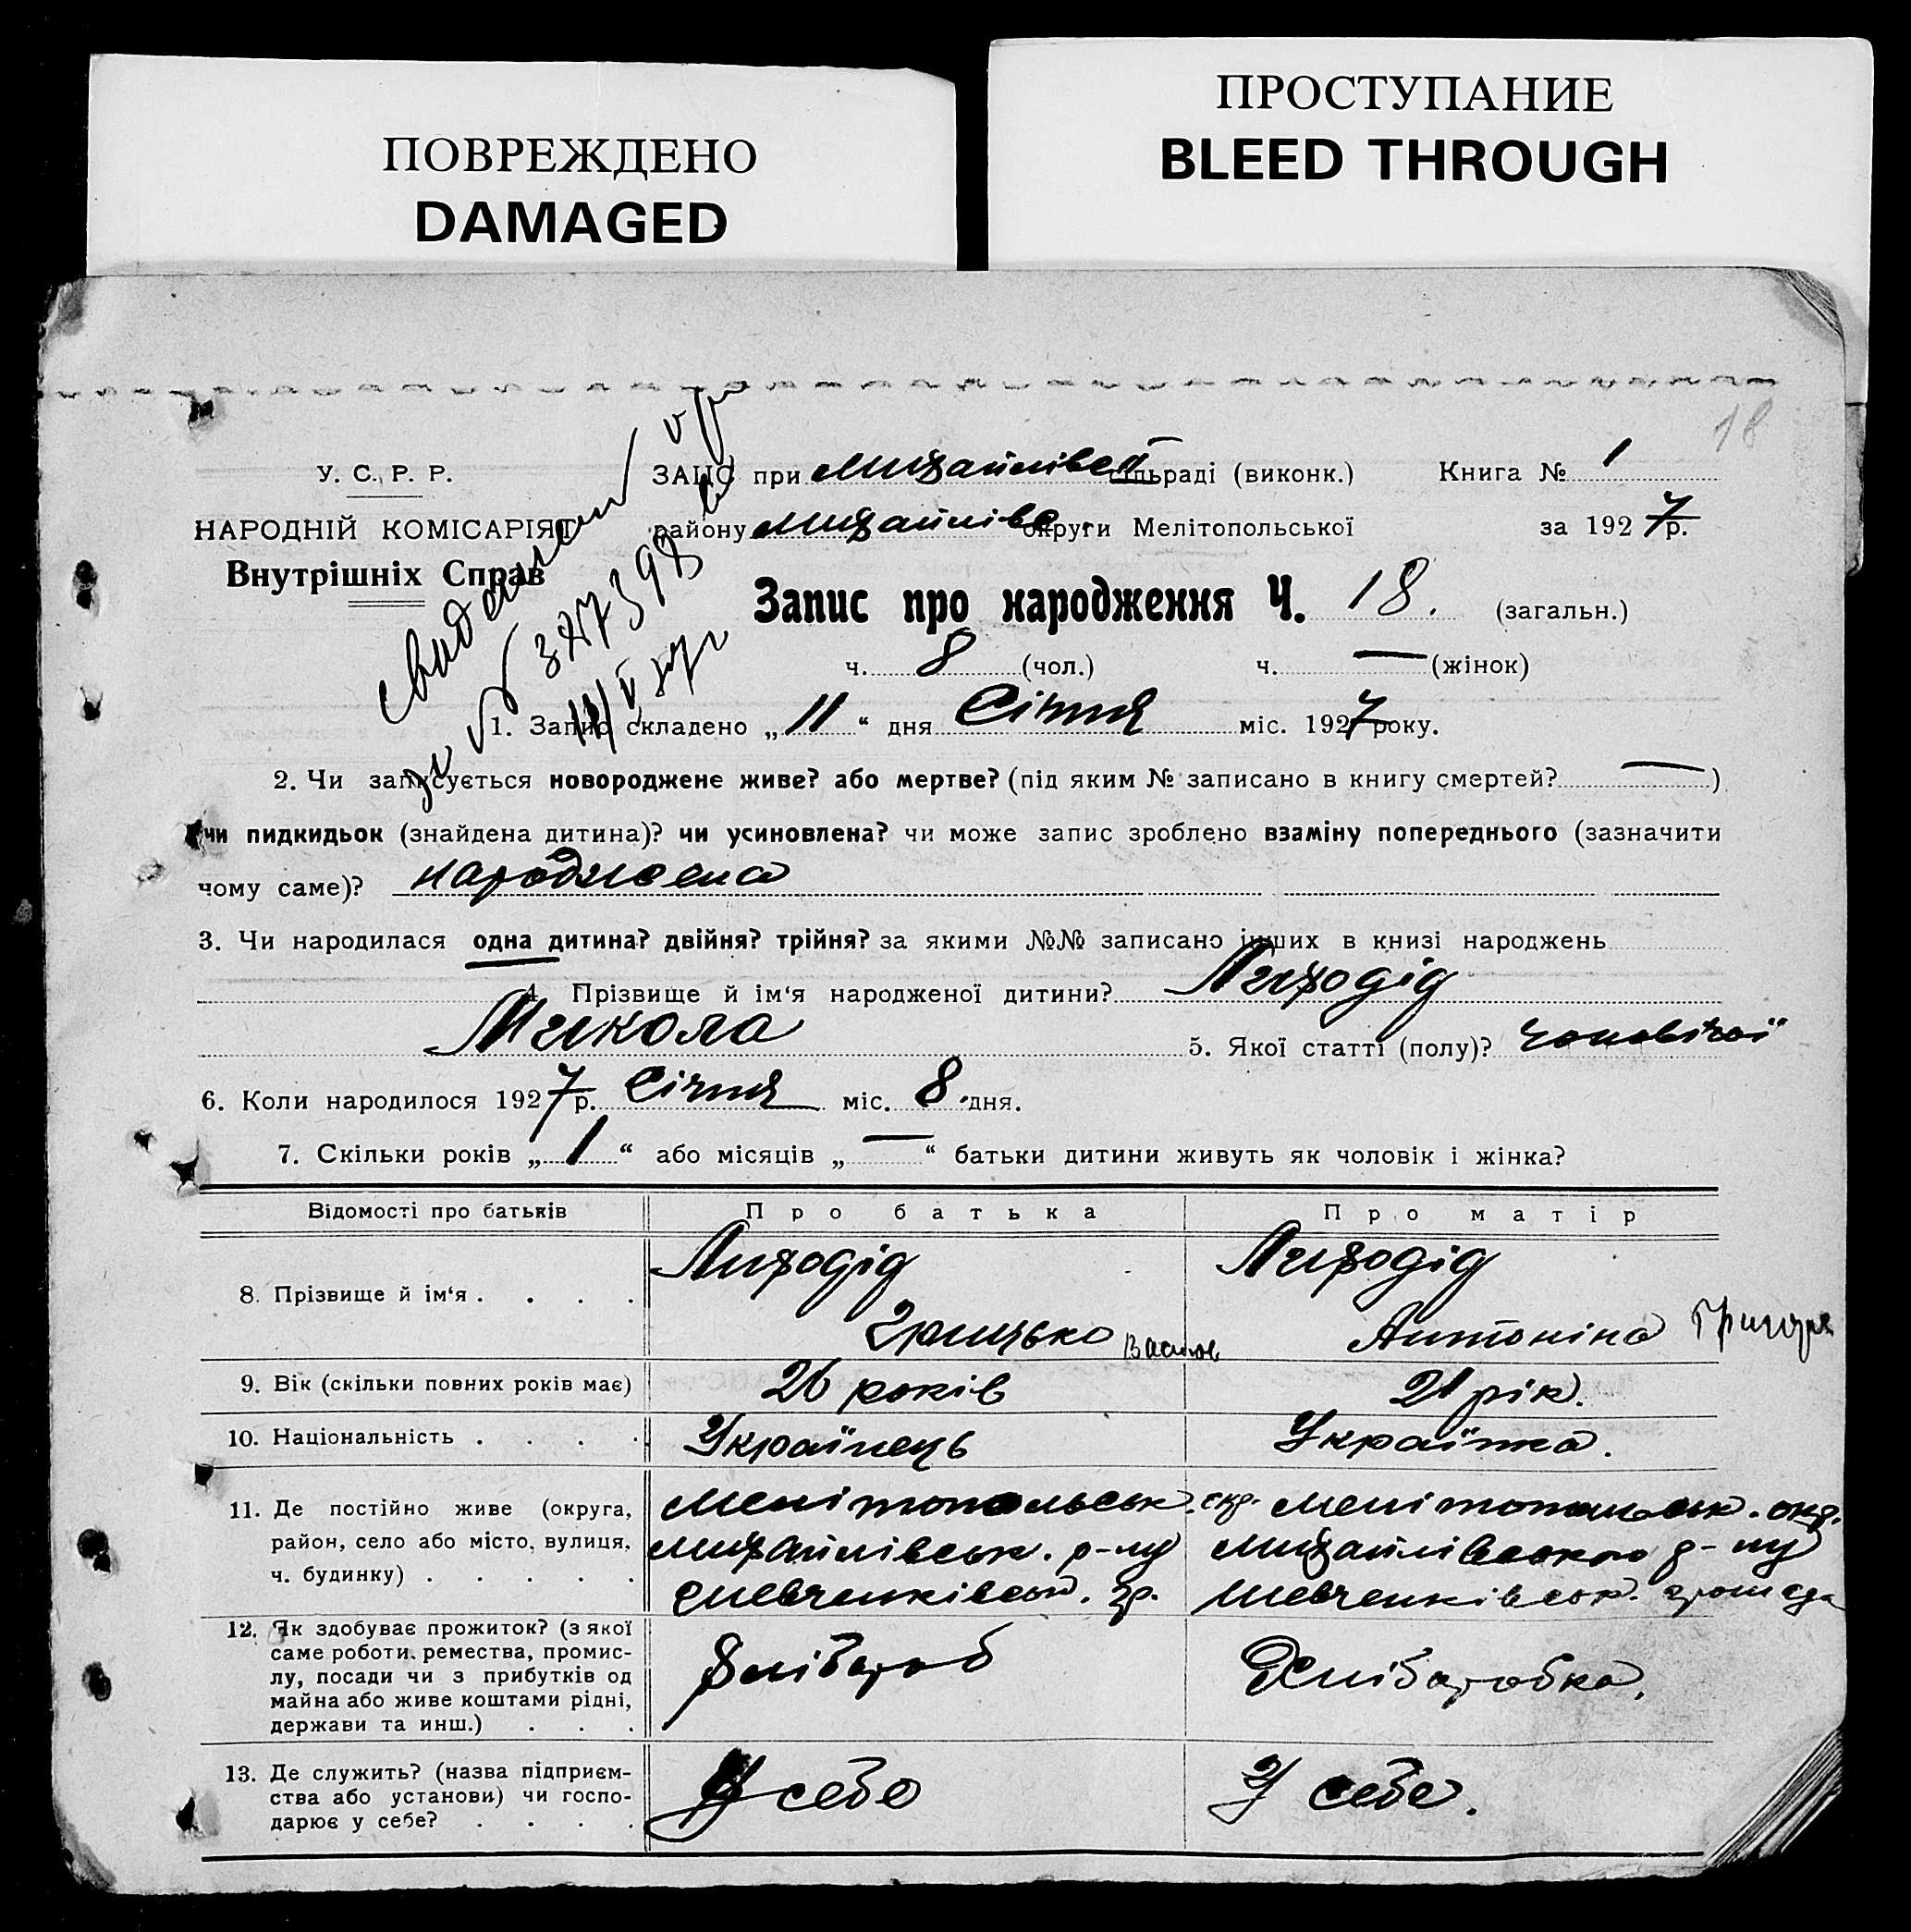 ПОВРЕЖДЕНО
DAMAGED
ПРОСТУПАНИЕ
BLEED THROUGH
18
У. С. Р. Р.
НАРОДНІЙ КОМІСАРІЯТ
Внутрішніх Справ
ЗАГС при Михайлівсй сільраді (виконк.) Книга № 1
району Михайлівс округи Мелітопольської за 1927 р.
Запис про народження Ч. 18. (загальн.)
ч. 8 (чол.) ч. — (жінок)
1. Запис складено „11“ дня Січня міс. 1927 року.
2. Чи записується новороджене живе? або мертве? (під яким № записано в книгу смертей? — )
чи пидкидьок (знайдена дитина)? чи усиновлена? чи може запис зроблено взаміну попереднього (зазначити
чому саме)? народжена
3. Чи народилася одна дитина? двійня? трійня? за якими №№ записано інших в книзі народжень
4. Прізвище й ім‘я народженої дитини? Лиходід
Микола 5. Якої статті (полу)? чоловічої
6. Коли народилося 1927 р. Січня міс. 8 дня.
7. Скільки років „1“ або місяців „—“ батьки дитини живуть як чоловік і жінка?
Відомості про батьків Про батька Про матір
8. Прізвище й ім‘я . . . . Лиходід Лиходід
Грицько Васильов Антоніна
9. Вік (скільки повних років має) 26 років 21 рік.
10. Національність . . . . Українець Українка.
11. Де постійно живе (округа, район, село або місто, вулиця, ч. будинку) . . . . .
Мелітопольськ. окр. Мелітопольськ. окр.
Михайлівськ. р-ну Михайлівського р-ну
Шевченківськ. гр. Шевченківськ. громада
12. Як здобуває прожиток? (з якої
саме роботи, ремества, промис-
лу, посади чи з прибутків од
майна або живе коштами рідні,
держави та инш.) . . .
Хлібороб Хліборобка.
13. Де служить? (назва підприєм-
ства або установи) чи госпо-
дарює у себе? . . . .
У себе У себе.